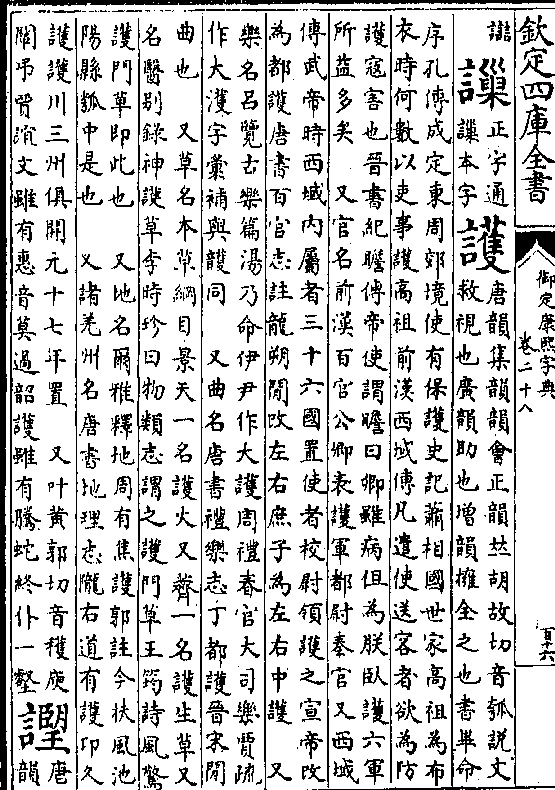 欽定四庫全書
御定康熙字典
卷二十八
譅
䜈正字通
䜈本字
護唐韻集韻韻會正韻𠀤胡故切音瓠説文
救視也廣韻助也增韻擁全之也書畢命
序孔傳成定東周郊境使有保護史記蕭相國世家高祖為布
衣時何數以吏事護高祖前漢西域傳凡遣使送客者欲為防
護寇害也晉書紀瞻傳帝使謂瞻曰卿雖病但為朕臥護六軍
所益多矣 又官名前漢百官公卿表護軍都尉秦官又西域
傳武帝時西域內屬者三十六國置使者校尉領護之宣帝改
為都護唐書百官志註龍朔間改左右庶子為左右中護 又
樂名呂覽古樂篇湯乃命伊尹作大護周禮春官大司樂賈疏
作大濩字彙補與頀同 又曲名唐書禮樂志丁都護晉宋間
曲也 又草名本草綱目景天一名護火又薺一名護生草又
名醫别錄神護草李時珍曰物類志謂之護門草王筠詩風驚
護門草即此也 又地名爾雅釋地周有焦護郭註今扶風池
陽縣瓠中是也 又諸羌州名唐書地理志隴右道有護卭久
護護川三州俱開元十七年置 又叶黄郭切音穫庾
闡弔賈誼文雖有惠音莫過韶護雖有騰蛇終仆一壑
唐
韻